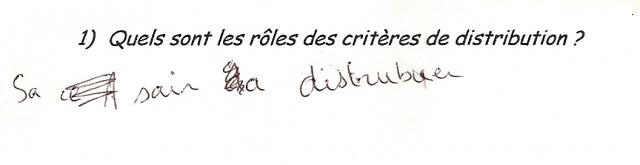 1) Quels sont les rôles des critères de distribution ?
Sa sair a distrubuer